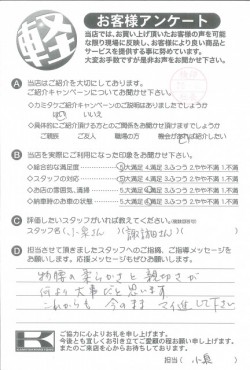 軽
お客様アンケート
当店では、お買い上げ頂いたお客様の声を可能
な限り現場に反映し、お客様により良い商品と
サービスを提供する事に努めています。
大変お手数ですが是非お声をお聞かせ下さい。
A 当店はご紹介を大切にしております。
ご紹介キャンペーンについてお聞かせ下さい。
◇カミタケご紹介キャンペーンのご説明はありましたでしょうか
はい いいえ
◇具体的にご紹介頂ける方とのご関係をお聞かせ頂けますでしょうか
ご親族 ご友人 職場の方 機会があれば紹介したい
B 当店を実際にご利用になった印象をお聞かせ下さい。
◇総合的な満足度 5大満足 4.満足 3.ふつう 2.やや不満 1.不満
◇スタッフの対応 5大満足 4.満足 3.ふつう 2.やや不満 1.不満
◇お店の雰囲気、清掃 5大満足 4.満足 3.ふつう 2.やや不満 1.不満
◇納車時のお車の状態 5大満足 4.満足 3.ふつう 2.やや不満 1.不満
C 評価したいスタッフがいれば教えてください。
スタッフ名(小泉さん)(諏訪姉さん)
D 担当させて頂きましたスタッフへのご指摘、ご指導メッセージを
お願いします。応援メッセージもぜひお願いします。
物腰の柔らかさと親切さが
何より大事だと思います
これからも 今のまま マイ進して下さい
K
ご協力に心よりお礼を申し上げます。
今後とも宜しくお引き立てご愛顧の程お願い申し上げます。
またのご来店を心からお待ちしております。
担当( 小泉 )